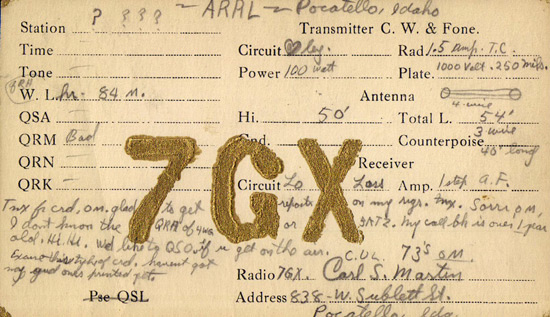 Station ? ? ? ? - ARAL - Pocatello, Idaho
Transmitter C. W. & Fone.
Time
Circuit Rad 1.5 Amp. T.C.
Tone
Power 100 watt Plate. 1000 Volt. 250 mils.
QRH
W. L. hr. 84 M.
Antenna
4 wire
QSA Hi. 50' Total L. 54'
QRM Bad Gnd. Counterpoise 3 wire
40' long
QRN
Receiver
7GX
QRK Circuit Lo Loss Amp. 1 step A.F.
Tnx fr crd, o.m. glad to get reports on my sigs. tnx. Sorri o m,
I dont know the QRA of 4 or 9ATZ. My call bk is over 1 year
old. Hi. Hi. Wd like to QSO, if u get on the air. C.U.L. 73's O.M.
this type of crd. havent got
my good ones printed yet.
Radio 7GX. Carl S. Martin
Pse QSL
Address 838-W. Sublett St.
Pocatello, Ida.